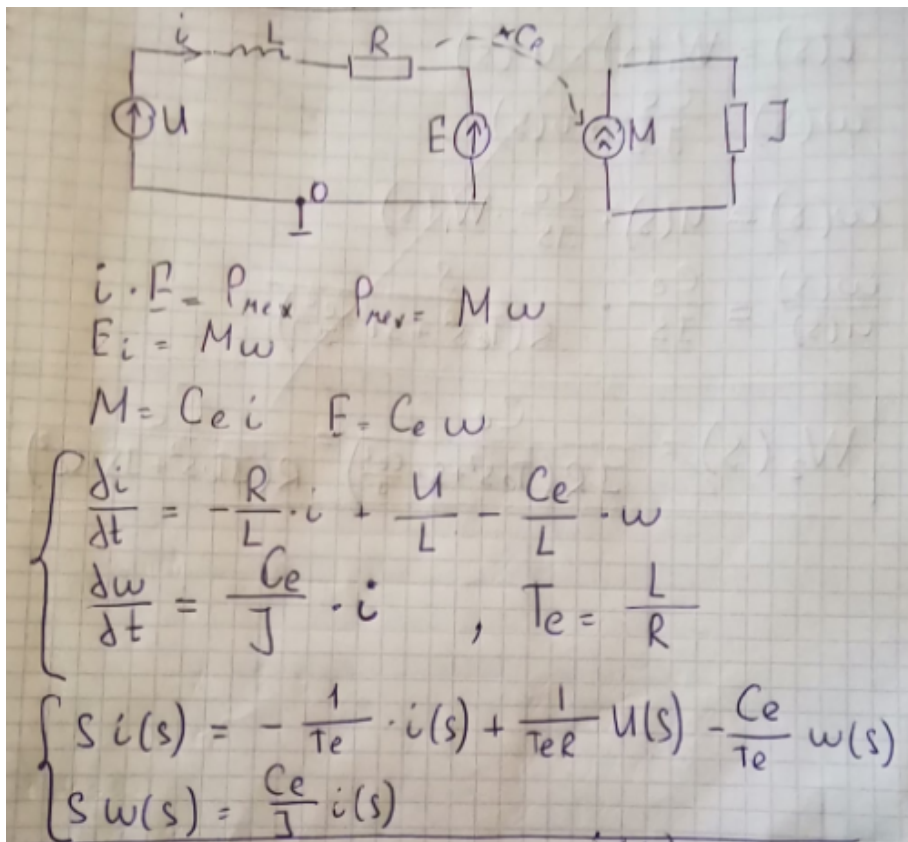 i L R *Ce
U E M J
0
i · E = Pmex Pmex = M w
Ei = Mw
M = Ce i E = Ce w
di/dt = -R/L · i + U/L - Ce/L · w
dw/dt = Ce/J · i , Te = L/R
S i(s) = - 1/Te · i(s) + 1/TeR U(s) - Ce/Te w(s)
S w(s) = Ce/J i(s)